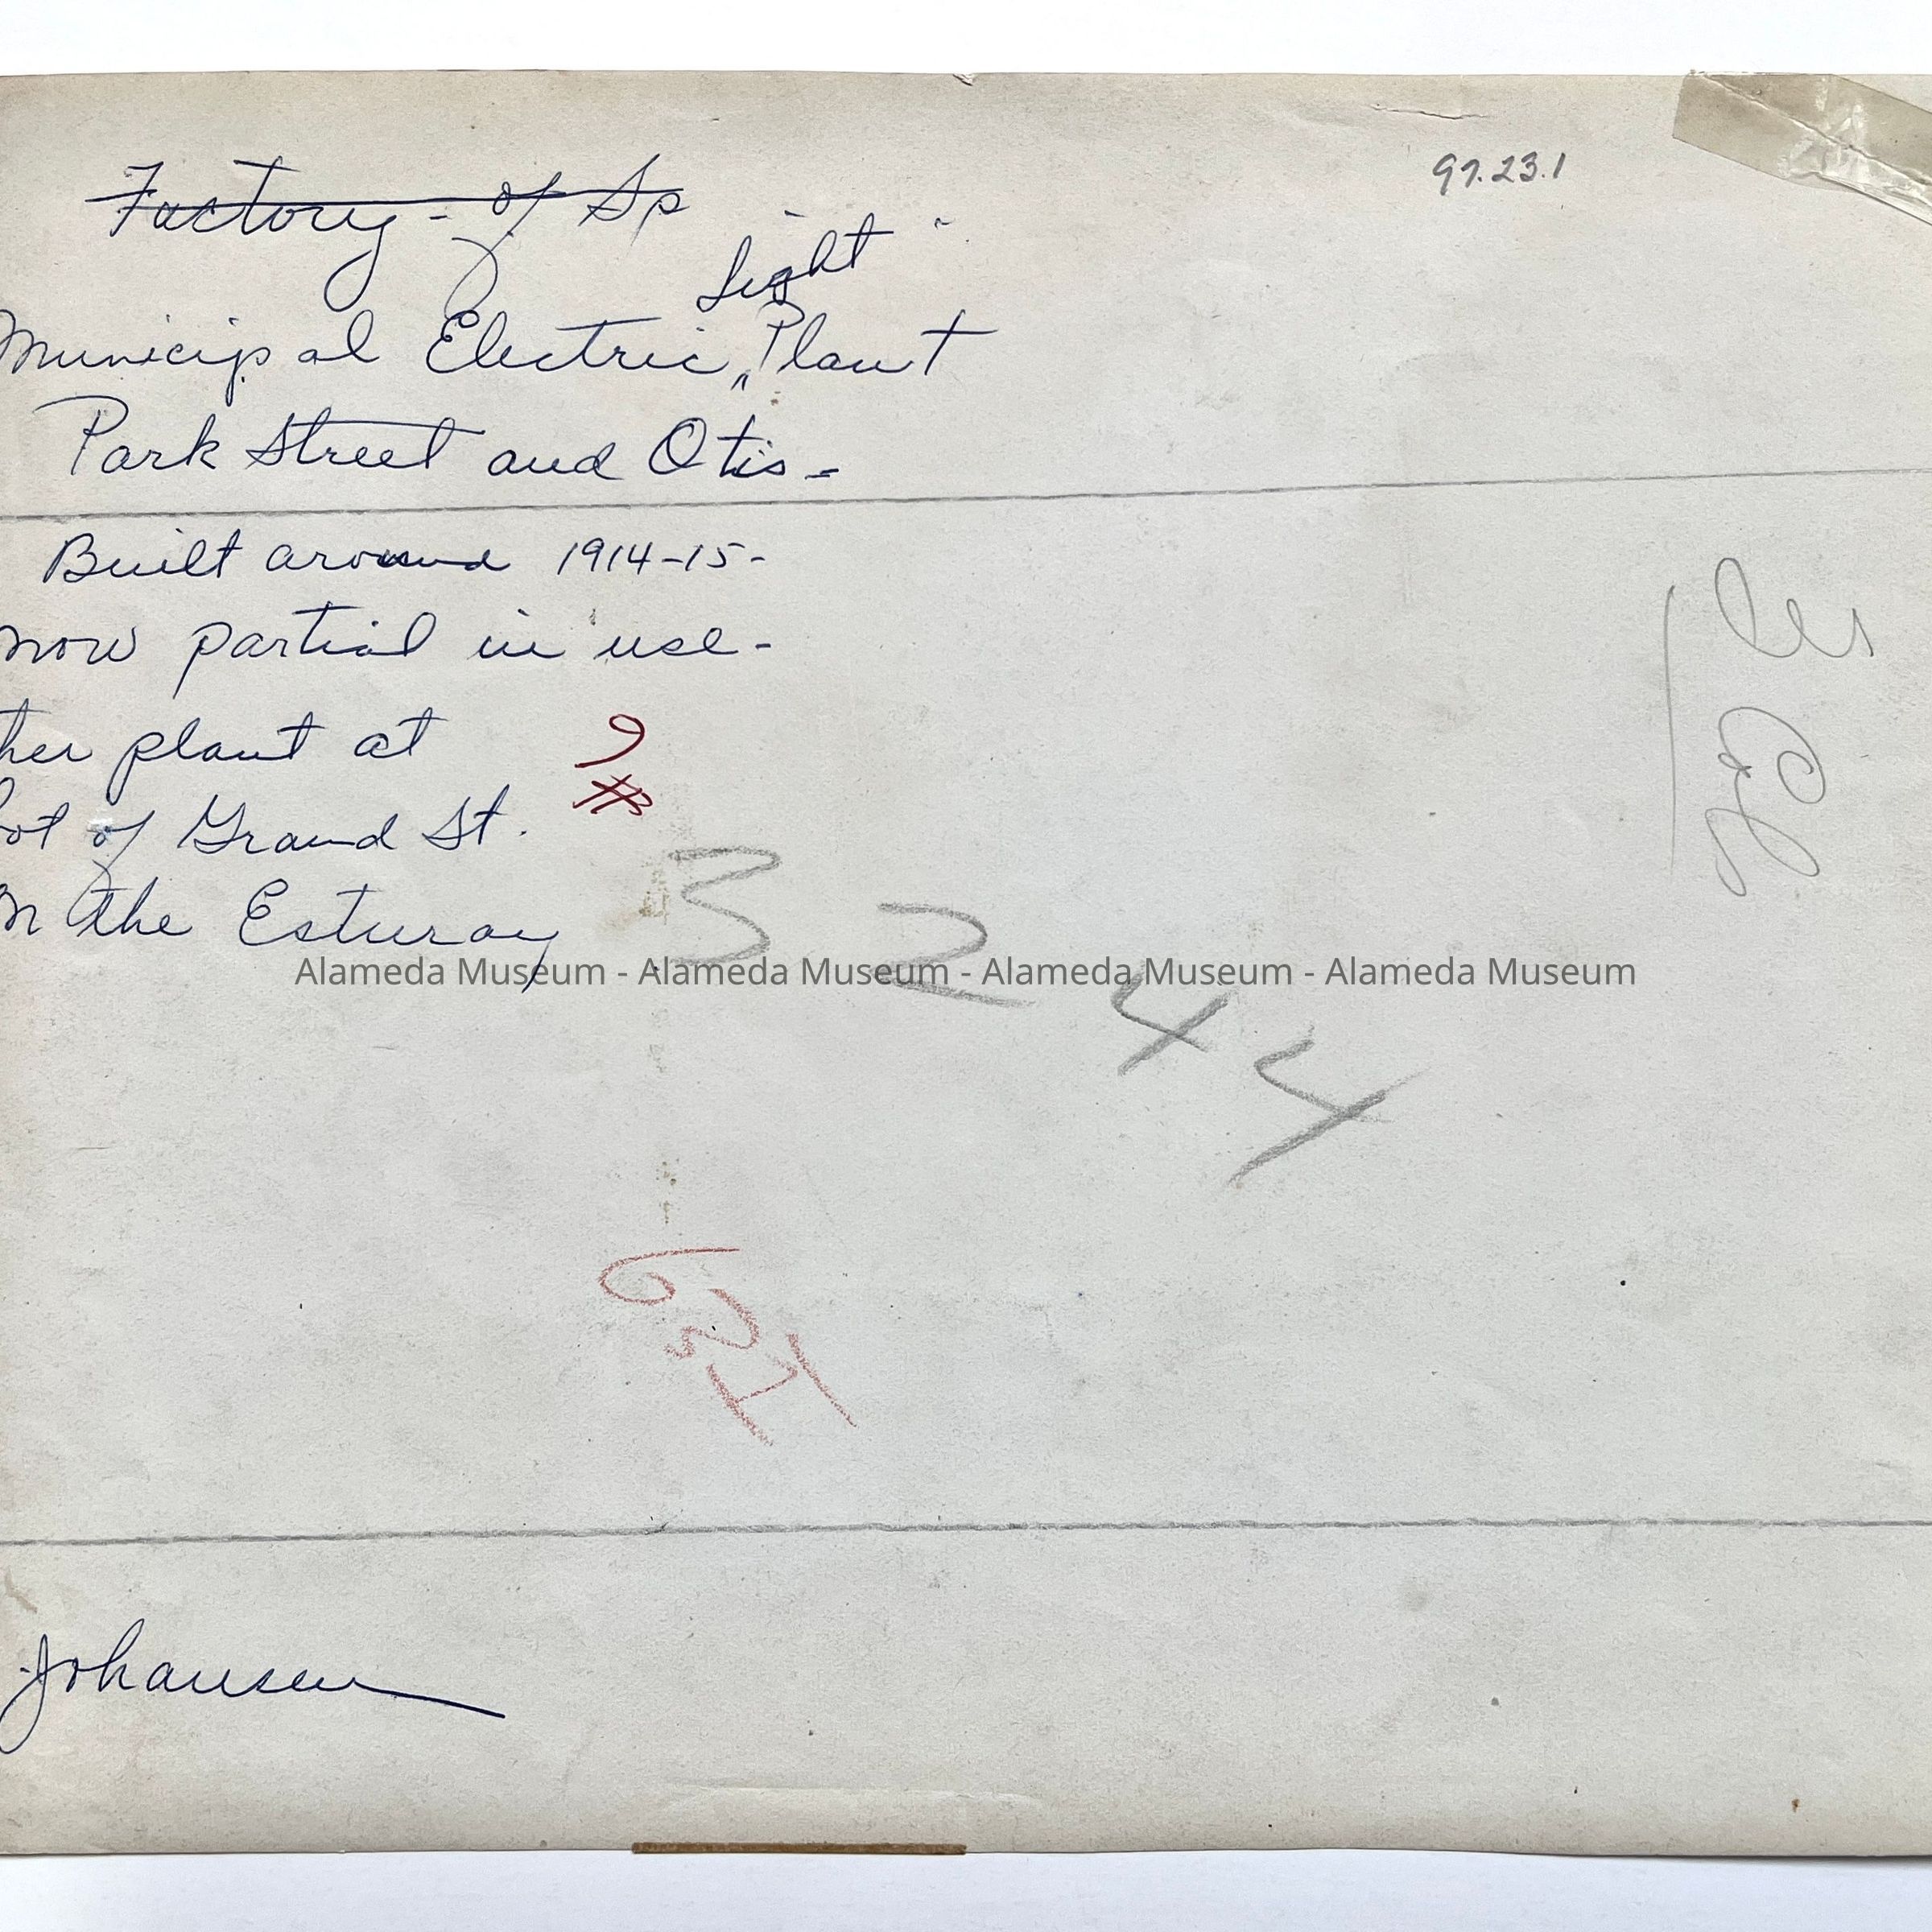 Factory - of Sp
97.23.1
"Light"
Municipal Electric Plant
Park Street and Otis -
Built around 1914-15-
now partial in use -
ther plant at
oot of Grand St.
on the Esturay
9
#
3244
Alameda Museum - Alameda Museum - Alameda Museum - Alameda Museum
Johansen